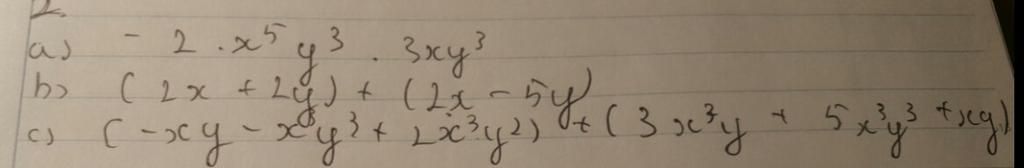 2.
a) - 2 . x⁵ y³ . 3xy³
b) (2x + 2y) + (2x - 5y)
c) (-xy - x³y³ + 2x³y²) + (3x³y + 5x³y³ + xy)